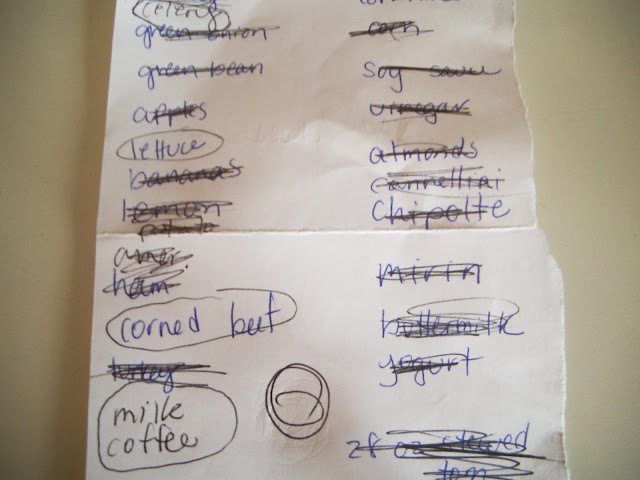 celery
green onion
green bean
apples
lettuce
bananas
lemon
potato
ham
corned beef
turkey
milk
coffee
corn
soy sauce
vinegar
almonds
cannellini
chipotle
mirin
buttermilk
yogurt
28 oz stewed
tom